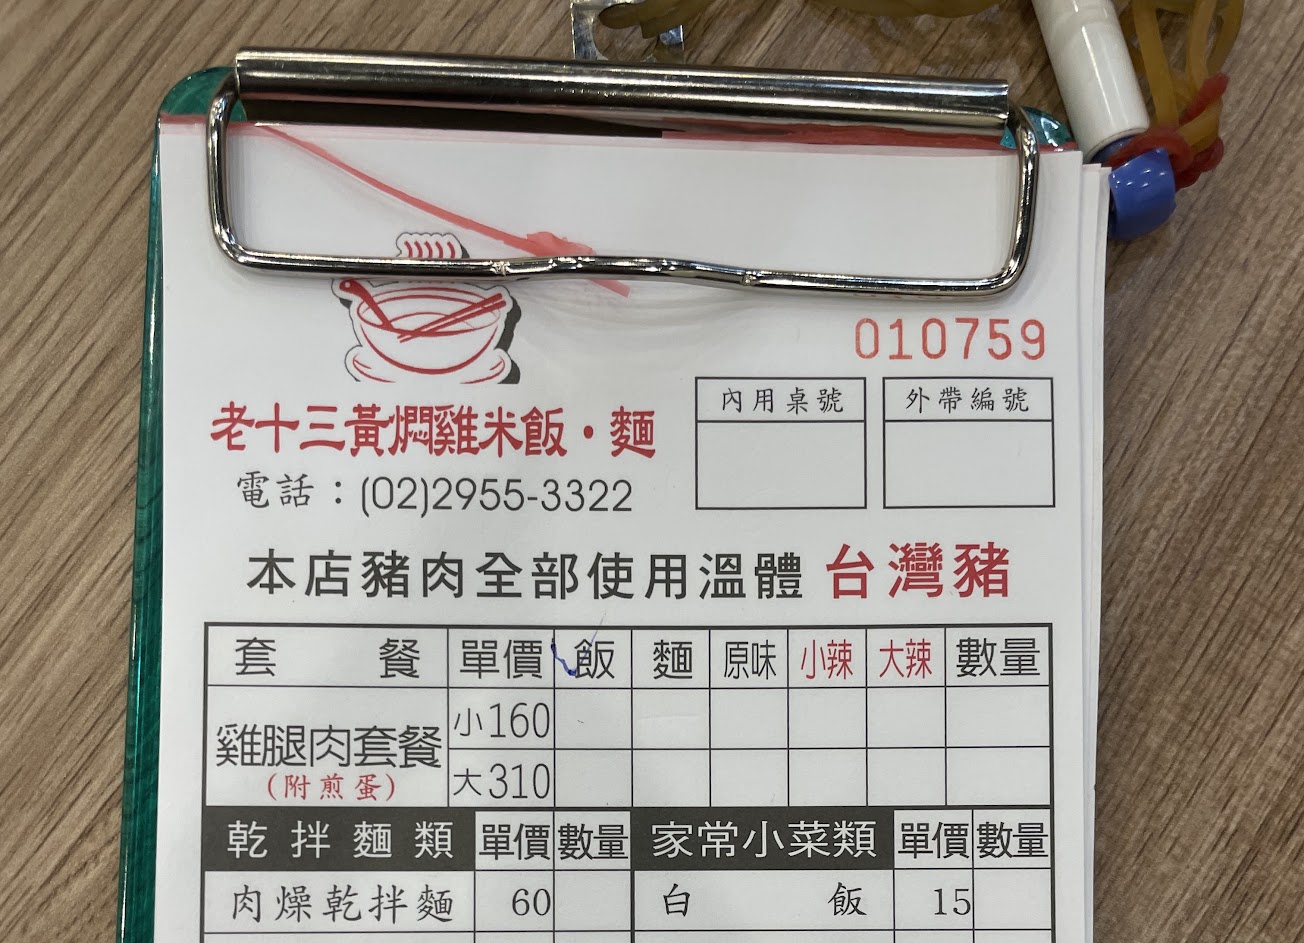 010759
內用桌號 外帶編號
老十三黃燜雞米飯・麵
電話：(02)2955-3322
本店豬肉全部使用溫體 台灣豬
套餐 單價 飯 麵 原味 小辣 大辣 數量
雞腿肉套餐 小160
(附煎蛋) 大310
乾拌麵類 單價 數量 家常小菜類 單價 數量
肉燥乾拌麵 60 白飯 15